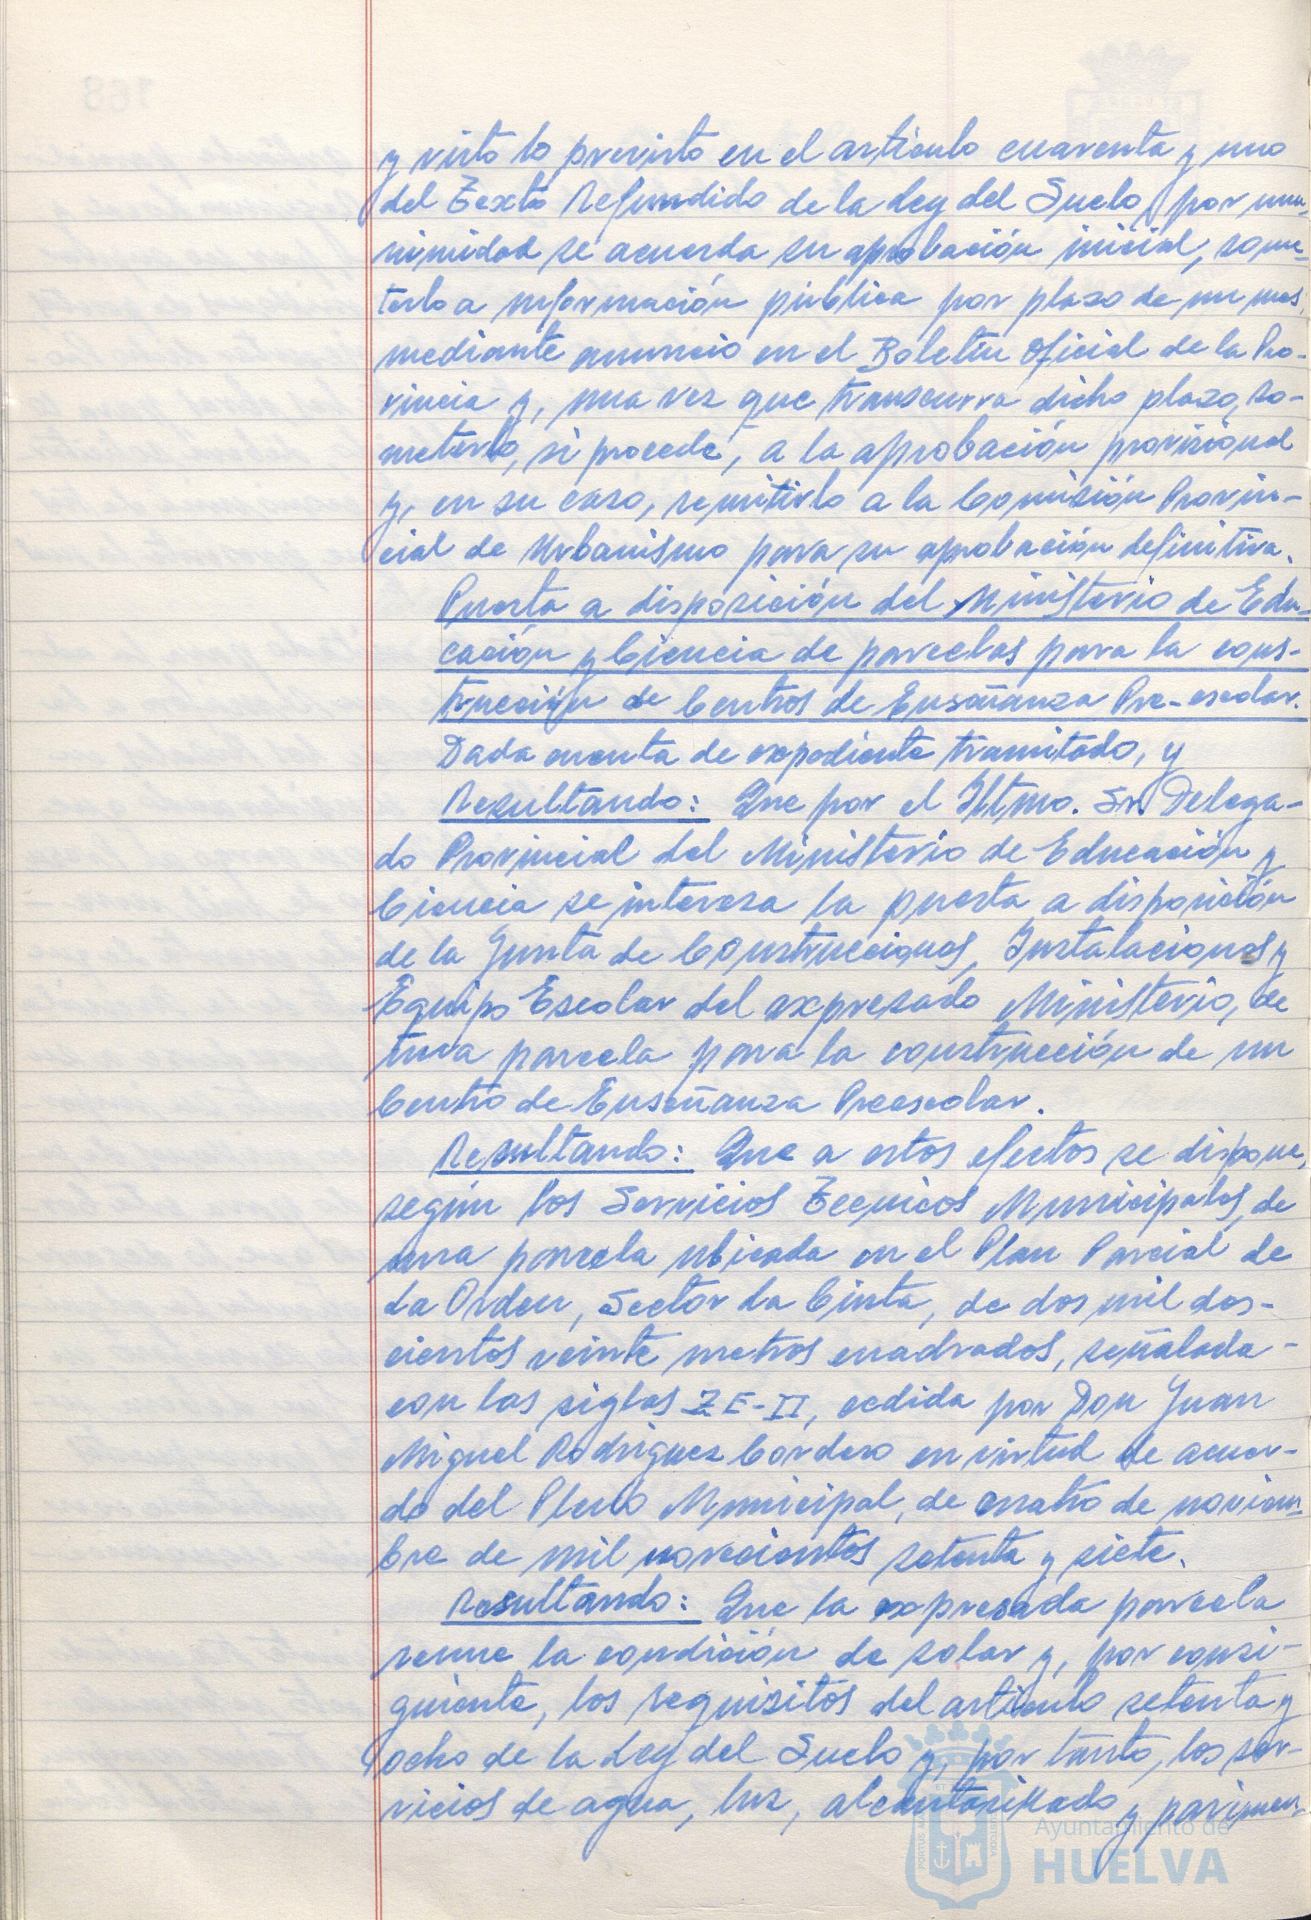 y visto lo previsto en el artículo cuarenta y uno
del Texto Refundido de la Ley del Suelo, por una-
nimidad se acuerda su aprobación inicial, some-
terlo a información pública por plazo de un mes,
mediante anuncio en el Boletín Oficial de la Pro-
vincia y, una vez que transcurra dicho plazo, so-
meterlo, si procede, a la aprobación provisional
y, en su caso, remitirlo a la Comisión Provin-
cial de Urbanismo para su aprobación definitiva.
Puesta a disposición del Ministerio de Edu-
cación y Ciencia de parcelas para la cons-
trucción de Centros de Enseñanza Pre-escolar.
Dada cuenta de expediente tramitado, y
Resultando: Que por el Iltmo. Sr. Delega-
do Provincial del Ministerio de Educación y
Ciencia se interesa la puesta a disposición
de la Junta de Construcciones, Instalaciones y
Equipo Escolar del expresado Ministerio, de
una parcela para la construcción de un
Centro de Enseñanza Preescolar.
Resultando: Que a estos efectos se dispone,
según los Servicios Técnicos Municipales, de
una parcela ubicada en el Plan Parcial de
La Orden, Sector La Cinta, de dos mil dos-
cientos veinte metros cuadrados, señalada -
con las siglas ZE-II, cedida por Don Juan
Miguel Rodriguez Cordero en virtud de acuer-
do del Pleno Municipal, de cuatro de noviem-
bre de mil novecientos setenta y siete.
Resultando: Que la expresada parcela
reune la condición de solar y, por consi-
guiente, los requisitos del artículo setenta y
ocho de la Ley del Suelo y, por tanto, los ser-
vicios de agua, luz, alcantarillado y pavimen-
Ayuntamiento de
HUELVA